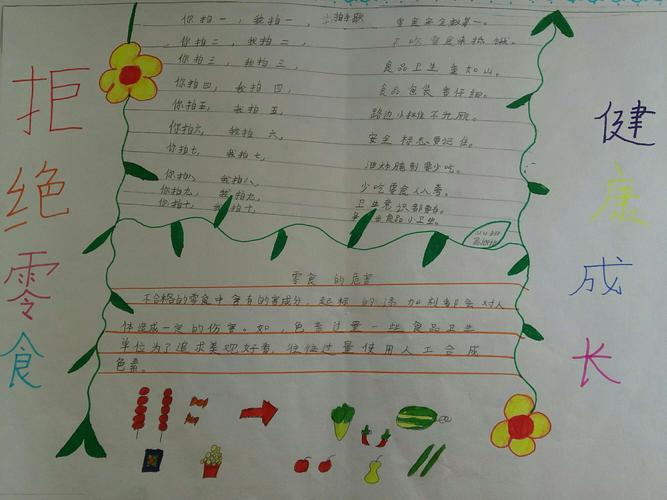 拒绝零食
健康成长
拍手歌
你拍一，我拍一，
你拍二，我拍二，
你拍三，我拍三，
食品卫生重如山。
你拍四，我拍四，
食品包装看仔细。
你拍五，我拍五，
路边小摊不光顾。
你拍六，我拍六，
安全标志要记住。
你拍七，我拍七，
油炸腌制要少吃。
你拍八，我拍八，
少吃零食人人夸。
你拍九，我拍九，
卫生意识都要有。
你拍十，我拍十，
零食的危害
不合格的零食中含有的有害成分，超标的添加剂都会对人
体造成一定的伤害。如，色素过量一些食品卫生
单位为了追求美观好看，往往过量使用人工合成
色素。